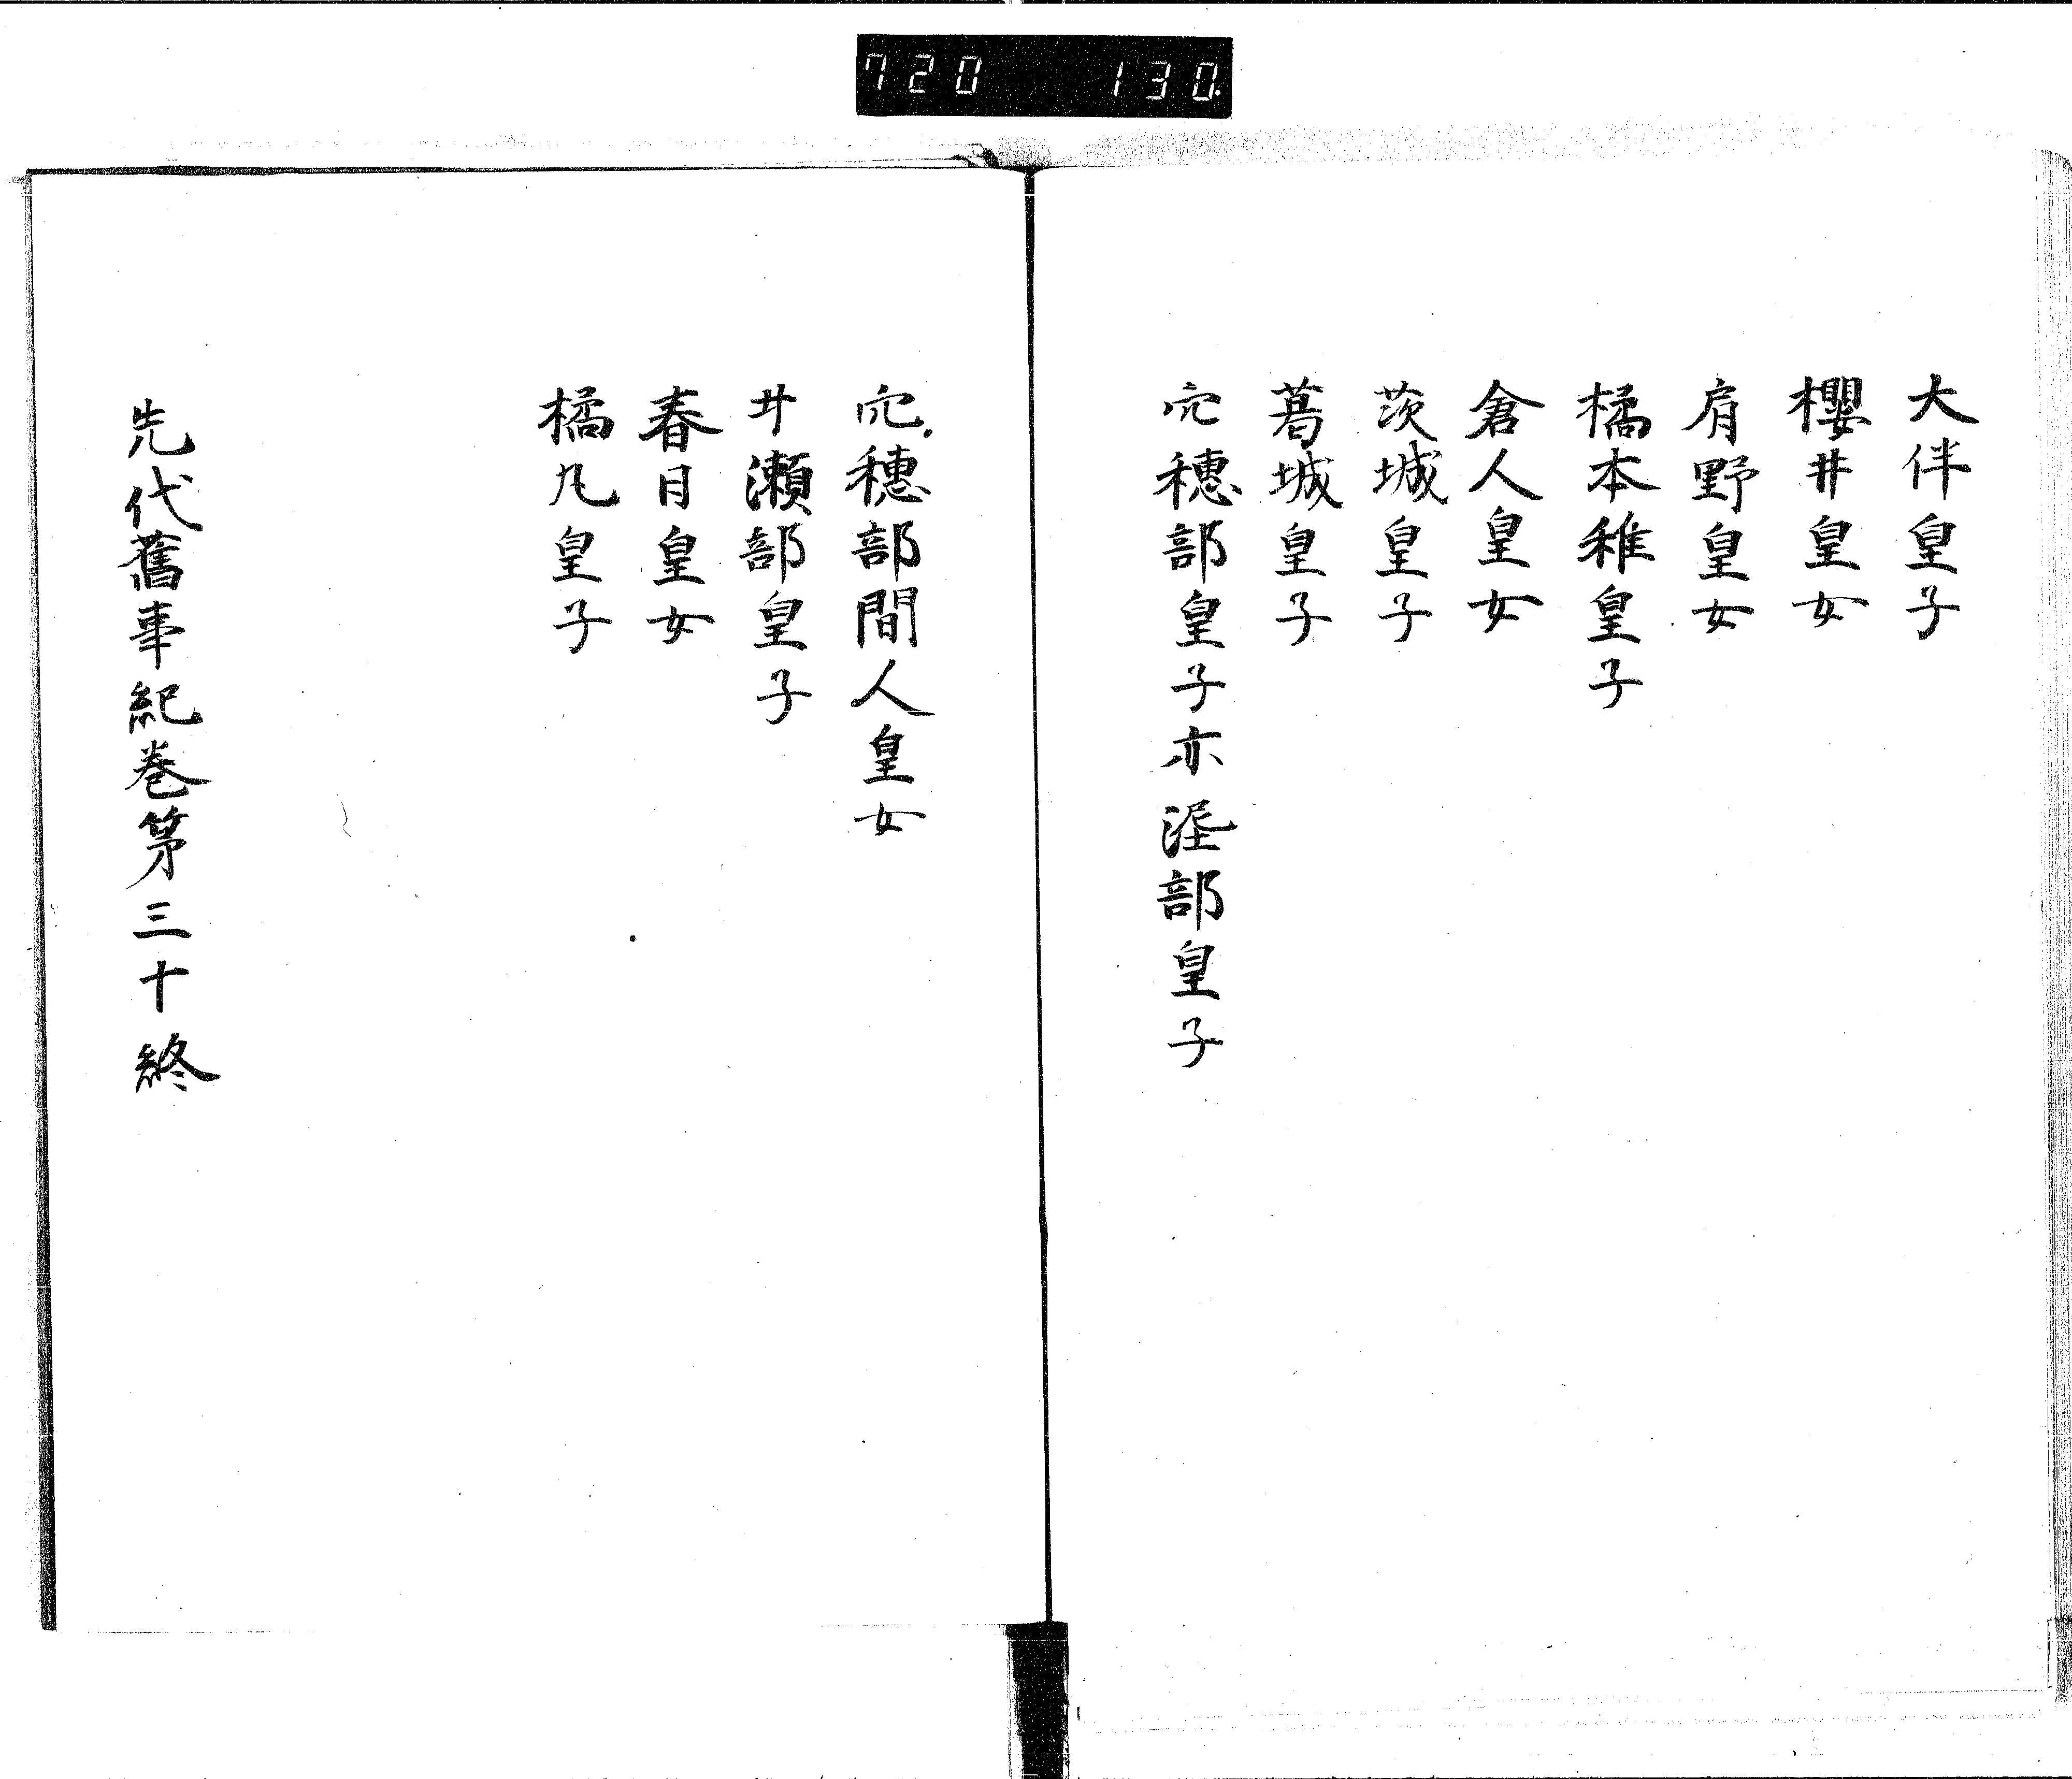 720 130
大伴皇子
櫻井皇女
肩野皇女
橘本稚皇子
倉人皇女
茨城皇子
葛城皇子
穴穗部皇子亦渥部皇子
穴穗部間人皇女
廾瀬部皇子
春日皇女
橘凡皇子
先代舊事紀巻第三十終